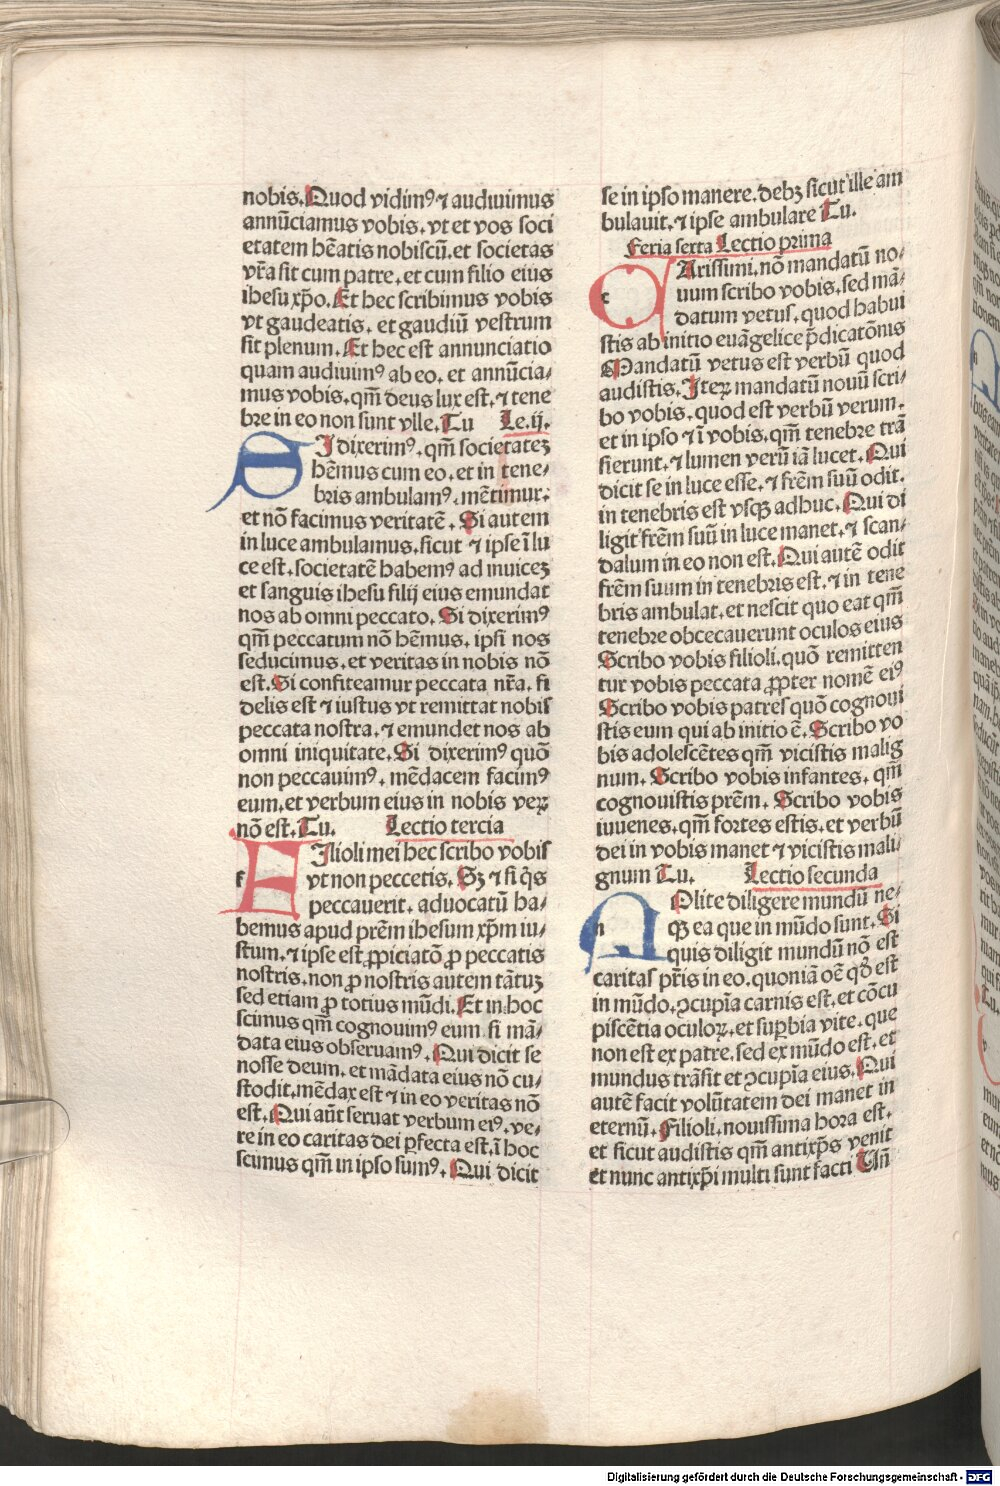 nobis. Quod vidimꝰ ⁊ audiuimus
annūciamus vobis. vt et vos soci
etatem hēatis nobiscū. et societas
vr̄a sit cum patre. et cum filio eius
ihesu xp̄o. Et hec scribimus vobis
vt gaudeatis. et gaudiū vestrum
sit plenum. Et hec est annunciatio
quam audiuimꝰ ab eo. et annūcia/
mus vobis. qm̄ deus lux est. ⁊ tene
bre in eo non sunt vlle. Tu Le.ij.
SI dixerimꝰ. qm̄ societatez
hēmus cum eo. et in tene/
bris ambulamꝰ. mētimur.
et nō facimus veritatē. Si autem
in luce ambulamus. sicut ⁊ ipse ī lu
ce est. societatē habemꝰ ad inuicez
et sanguis ihesu filij eius emundat
nos ab omni peccato. Si dixerimꝰ
qm̄ peccatum nō hēmus. ipsi nos
seducimus. et veritas in nobis nō
est. Si confiteamur peccata nr̄a. fi
delis est ⁊ iustus vt remittat nobis
peccata nostra. ⁊ emundet nos ab
omni iniquitate. Si dixerimꝰ quō
non peccauimꝰ. mēdacem facimꝰ
eum. et verbum eius in nobis veꝝ
nō est. Tu. Lectio tercia
f FIlioli mei hec scribo vobis
vt non peccetis. Sꝫ ⁊ si q̄s
peccauerit. aduocatū ha/
bemus apud prēm ihesum xp̄m iu/
stum. ⁊ ipse est ꝓpiciatō ꝓ peccatis
nostris. non ꝓ nostris autem tātuꝫ
sed etiam ꝓ totius mūdi. Et in hoc
scimus qm̄ cognouimꝰ eum si mā/
data eius obseruamꝰ. Qui dicit se
nosse deum. et mādata eius nō cu/
stodit. mēdax est ⁊ in eo veritas nō
est. Qui aūt seruat verbum eiꝰ. ve/
re in eo caritas dei ꝑfecta est. ī hoc
scimus qm̄ in ipso sumꝰ. Qui dicit
se in ipso manere. debꝫ sicut ille am
bulauit. ⁊ ipse ambulare Tu.
Feria sexta Lectio prima
c CArissimi. nō mandatū no/
uum scribo vobis. sed mā/
datum vetus. quod habui
stis ab initio euāgelice p̄dicatōnis
Mandatū vetus est verbū quod
audistis. Iteꝝ mandatū nouū scri/
bo vobis. quod est verbū verum.
et in ipso ⁊ ī vobis. qm̄ tenebre trā
sierunt. ⁊ lumen verū iā lucet. Qui
dicit se in luce esse. ⁊ frēm suū odit.
in tenebris est vsqꝫ adhuc. Qui di
ligit frēm suū in luce manet. ⁊ scan/
dalum in eo non est. Qui autē odit
frēm suum in tenebris est. ⁊ in tene
bris ambulat. et nescit quo eat qm̄
tenebre obcecauerunt oculos eius
Scribo vobis filioli. quō remitten
tur vobis peccata ꝓpter nomē eiꝰ
Scribo vobis patres quō cognoui
stis eum qui ab initio ē. Scribo vo
bis adolescētes qm̄ vicistis malig
num. Scribo vobis infantes. qm̄
cognouistis prēm. Scribo vobis
iuuenes. qm̄ fortes estis. et verbū
dei in vobis manet ⁊ vicistis mali/
gnum Tu. Lectio secunda
n NOlite diligere mundū ne/
qꝫ ea que in mūdo sunt. Si
quis diligit mundū nō est
caritas pr̄is in eo. quoniā oē qd̄ est
in mūdo. ꝯcupīa carnis est. et cōcu
piscētia oculoꝝ. et suꝑbia vite. que
non est ex patre. sed ex mūdo est. et
mundus trāsit et ꝯcupīa eius. Qui
autē facit volūtatem dei manet in
eternū. Filioli. nouissima hora est.
et sicut audistis qm̄ antixp̄s venit
et nunc antixp̄i multi sunt facti Vn̄
Digitalisierung gefördert durch die Deutsche Forschungsgemeinschaft - DFG